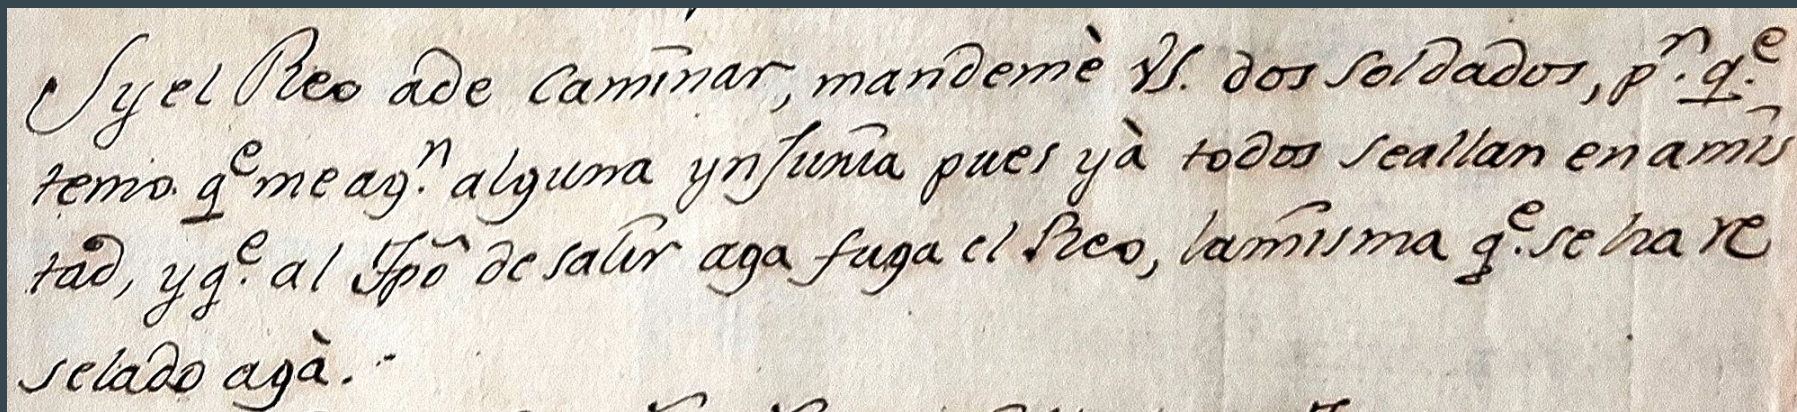 Sy el Reo ade caminar, mandemè VS. dos soldados, pn. qe.
temo. qe me agn. alguna ynfunia pues yà todos seallan en amis
tad, y qe. al Tpo de salir aga fuga el Reo, la misma qe. se ha re
selado agà.